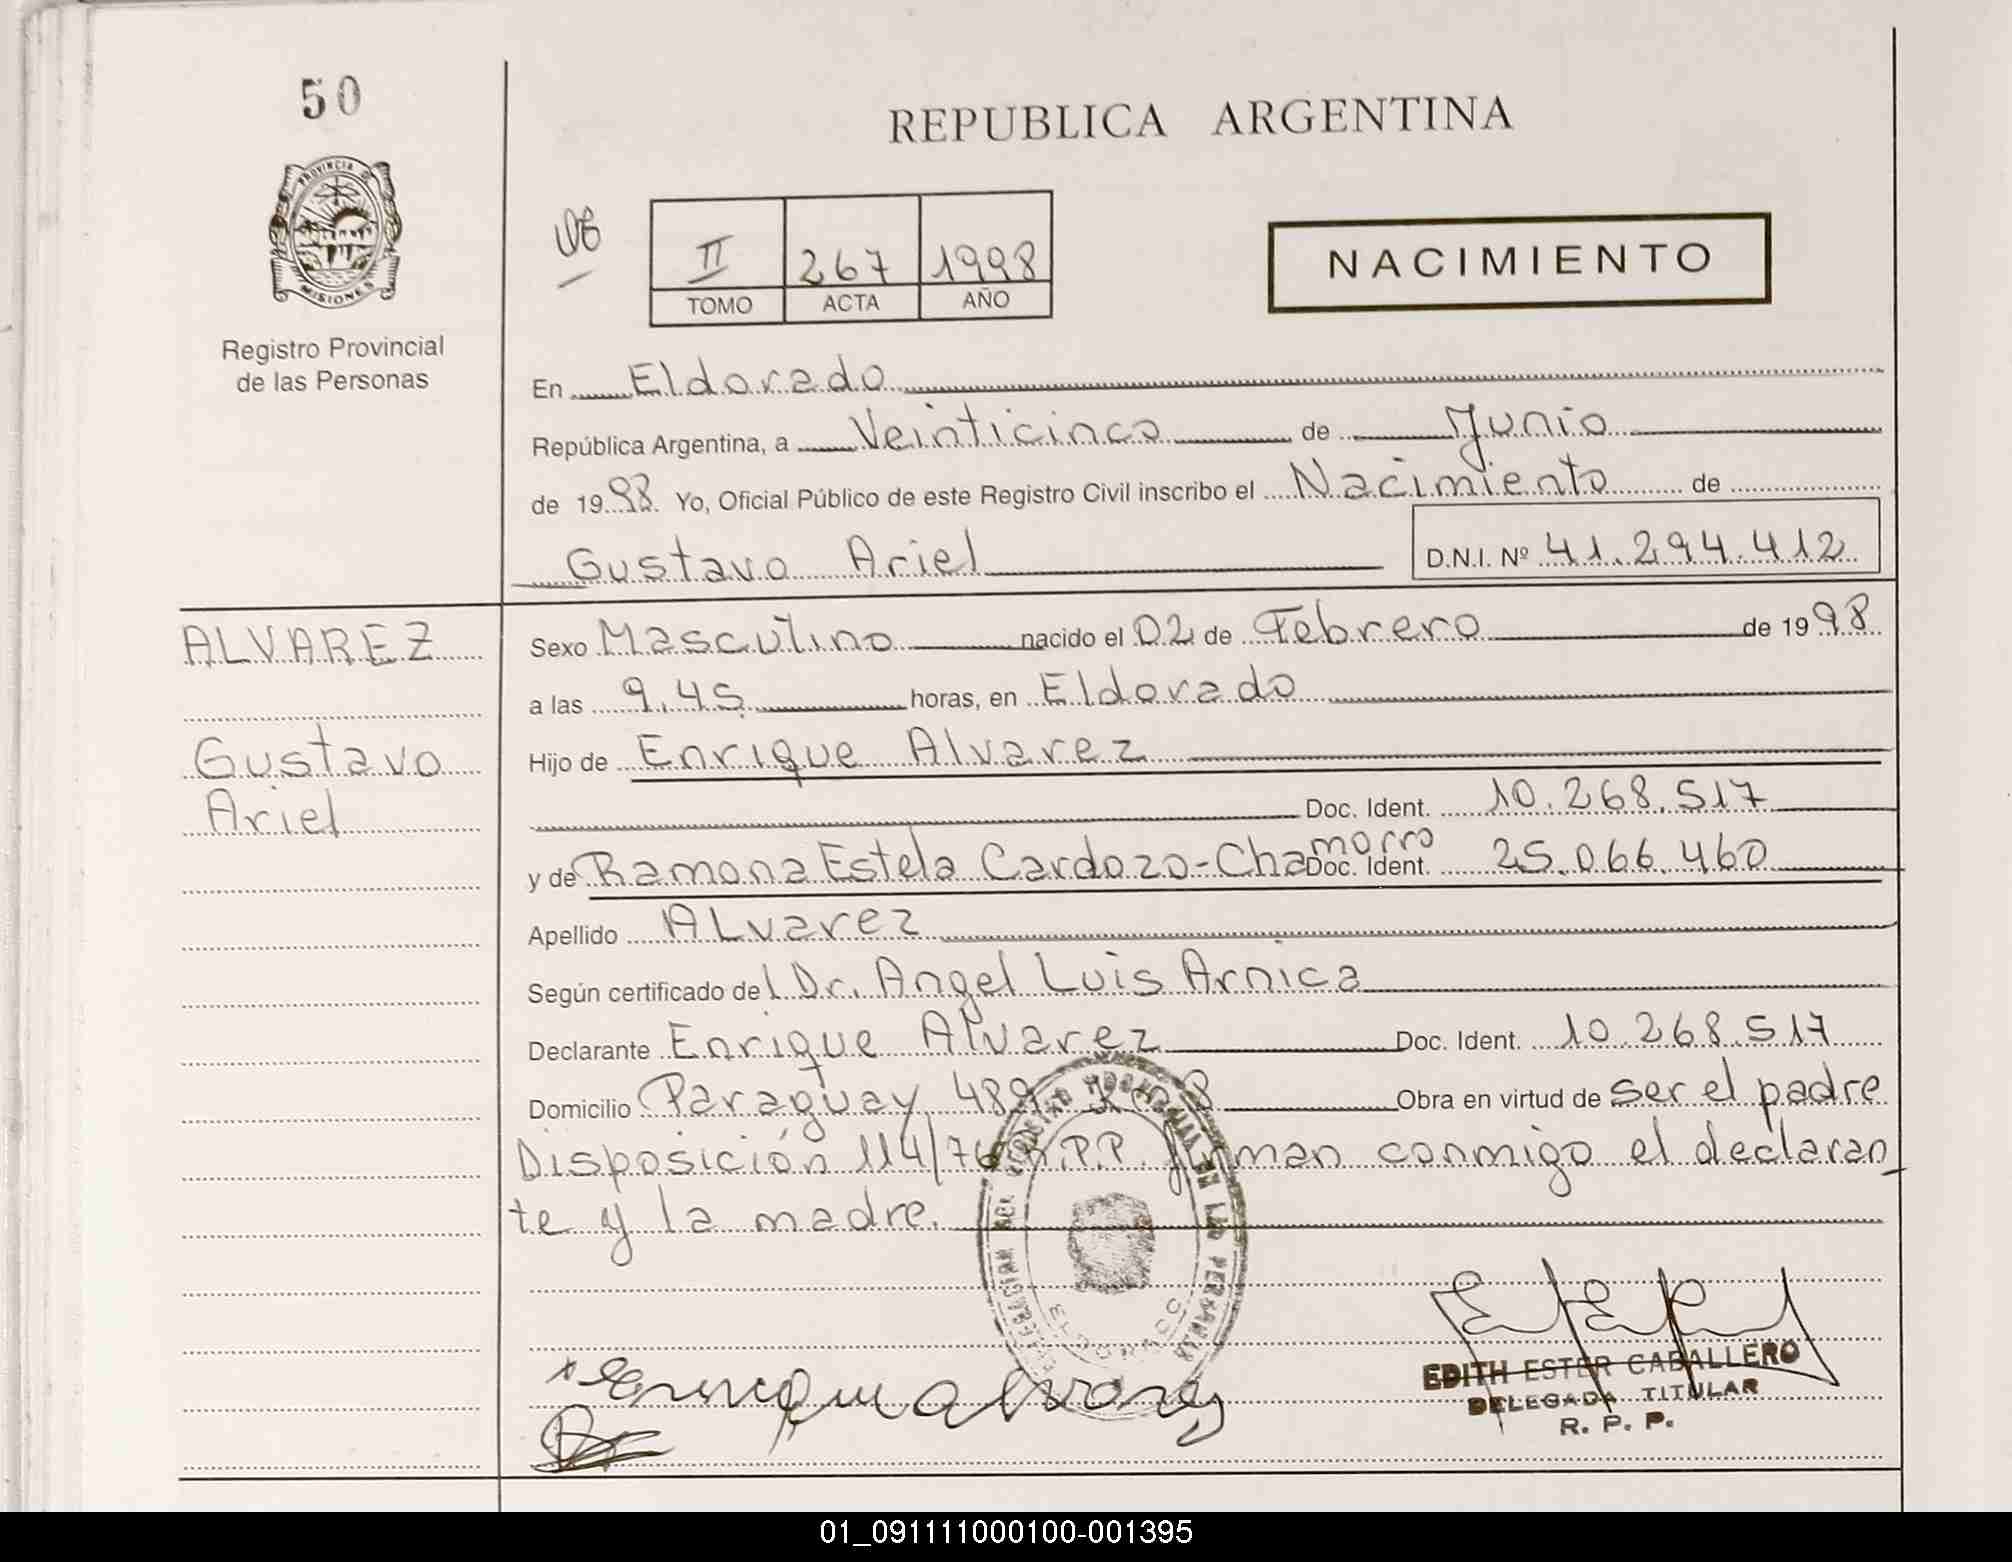 50
REPUBLICA ARGENTINA
PROVINCIA DE
MISIONES
Registro Provincial
de las Personas
II 267 1998
TOMO ACTA AÑO
NACIMIENTO
En Eldorado
República Argentina, a Veinticinco de Junio
de 1998 Yo, Oficial Público de este Registro Civil inscribo el Nacimiento de
Gustavo Ariel D.N.I. Nº 41.294.412
ALVAREZ
Gustavo
Ariel
Sexo Masculino nacido el 02 de Febrero de 1998
a las 9.45 horas, en Eldorado
Hijo de Enrique Alvarez
Doc. Ident. 10.268.517
y de Ramona Estela Cardozo-Chamorro Doc. Ident. 25.066.460
Apellido ALvarez
Según certificado del Dr. Angel Luis Arnica
Declarante Enrique Alvarez Doc. Ident. 10.268.517
Domicilio Paraguay 489 Obra en virtud de ser el padre
Disposición 114/76 R.P.P. firman conmigo el declaran
te y la madre.
ELDORADO
EDITH ESTER CABALLERO
DELEGADA TITULAR
R. P. P.
01_091111000100-001395